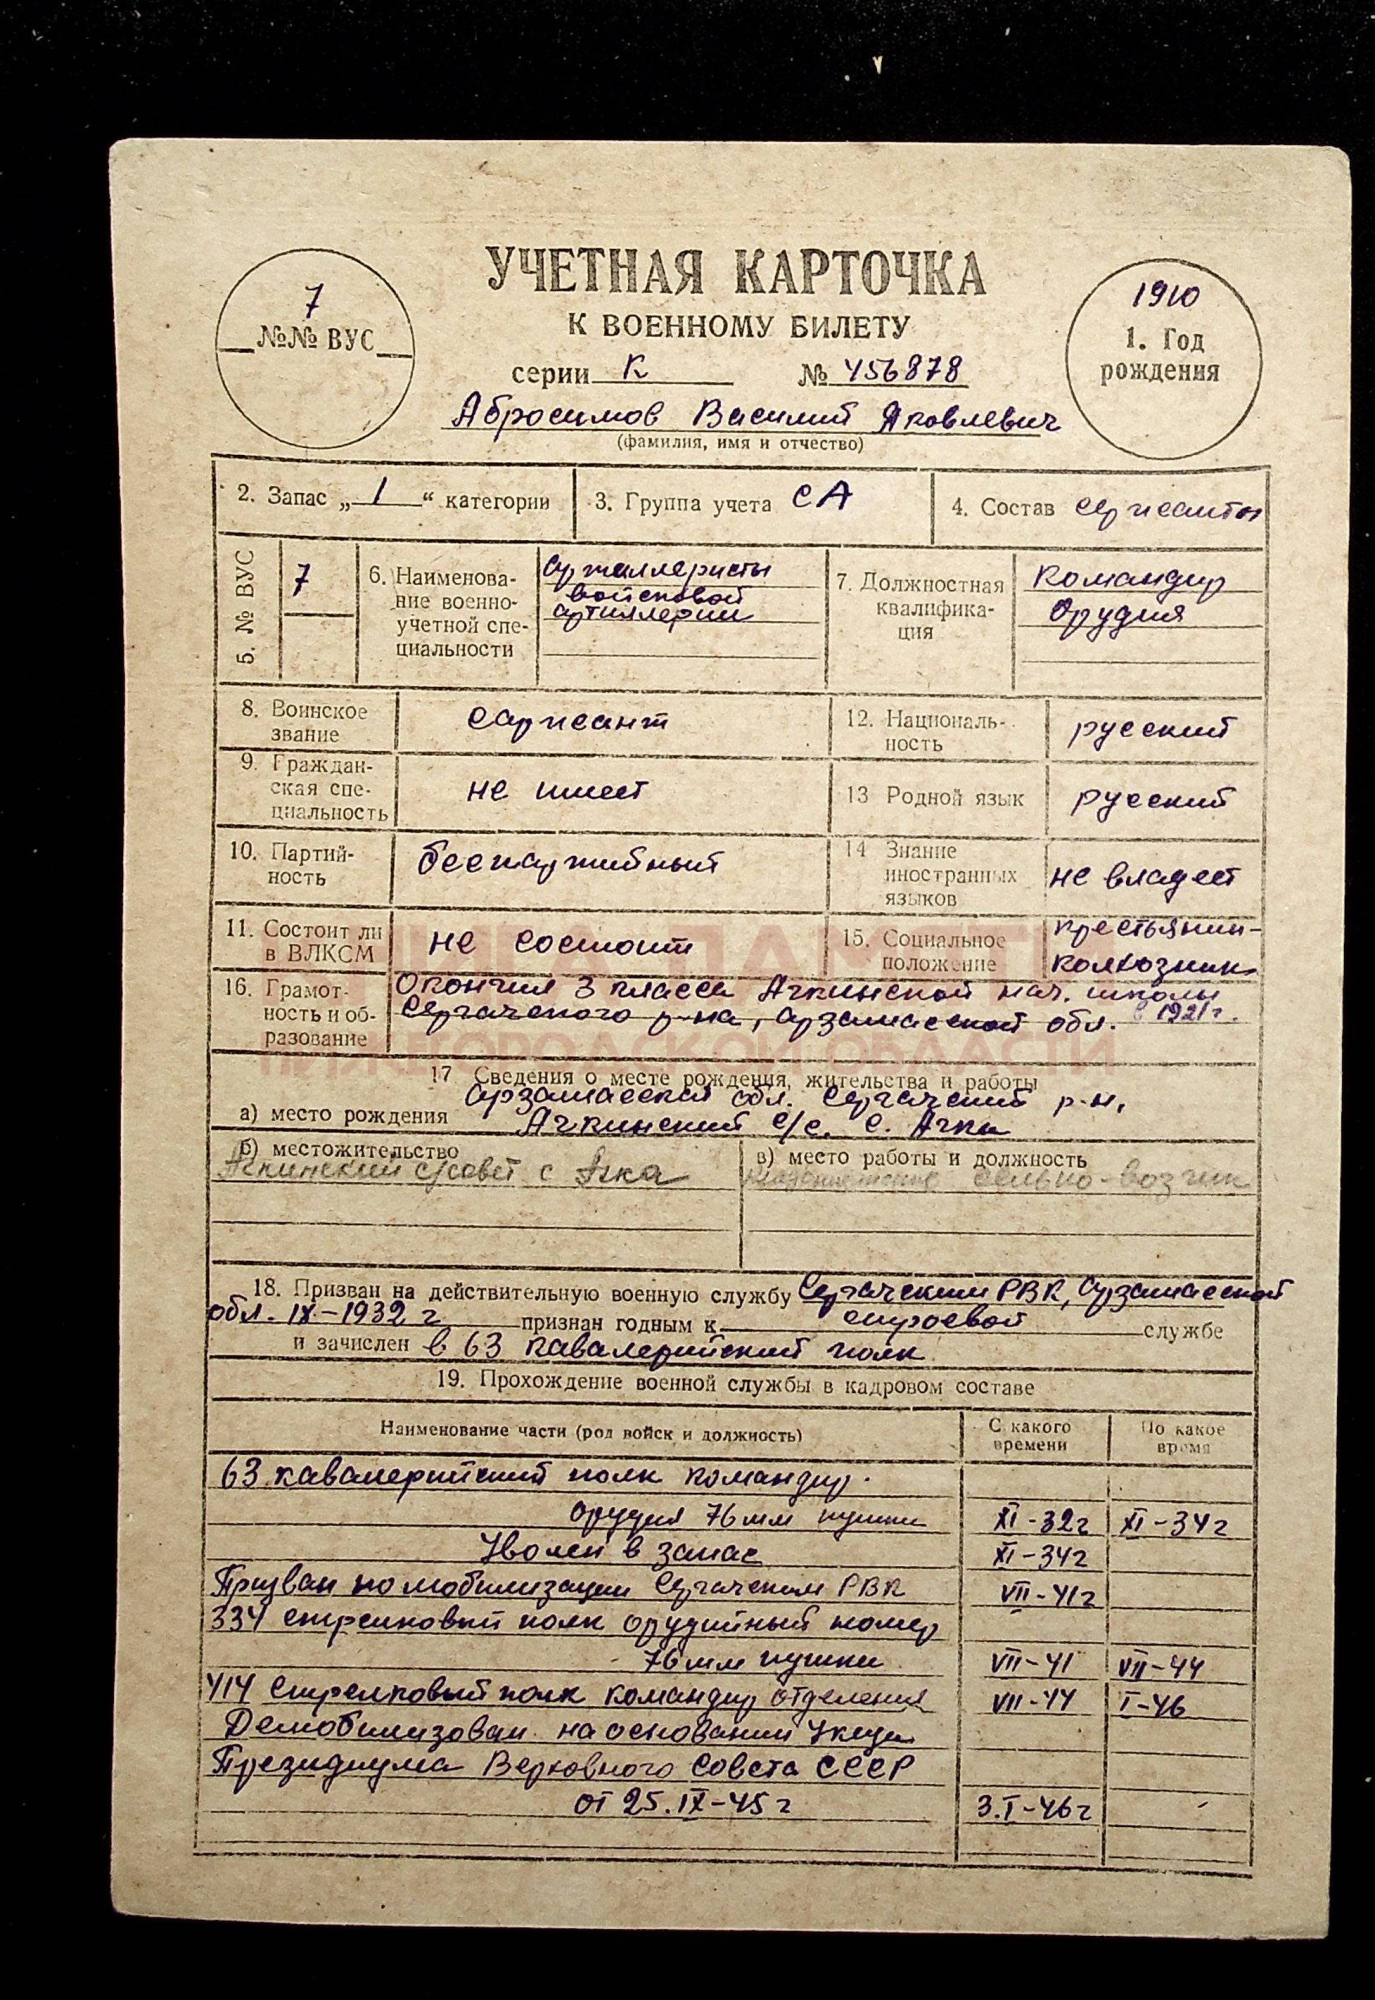 УЧЕТНАЯ КАРТОЧКА
К ВОЕННОМУ БИЛЕТУ
7
№№ ВУС
1910
1. Год
рождения
серии К № 456878
Абросимов Василий Яковлевич
(фамилия, имя и отчество)
2. Запас „1“ категории
3. Группа учета СА
4. Состав сержанты
5. № ВУС
7
6. Наименова-
ние военно-
учетной спе-
циальности
Артиллеристы
войсковой
артиллерии
7. Должностная
квалифика-
ция
Командир
Орудия
8. Воинское
звание
сержант
12. Националь-
ность
русский
9. Граждан-
ская спе-
циальность
не имеет
13 Родной язык
русский
10. Партий-
ность
беспартийный
14 Знание
иностранных
языков
не владеет
11. Состоит ли
в ВЛКСМ
не состоит
15. Социальное
положение
крестьянин-
колхозник
16. Грамот-
ность и об-
разование
Окончил 3 класса Ачкинской нач. школы
Сергачского р-на, Арзамасской обл. в 1921г.
НИЖЕГОРОДСКОЙ ОБЛАСТИ
17 Сведения о месте рождения, жительства и работы
а) место рождения
Арзамасская обл. Сергачский р-н,
Ачкинский с/с. с. Ачка
б) местожительство
Ачкинский с/совет с Ачка
в) место работы и должность
сельпо-возчик
18. Призван на действительную военную службу Сергачским РВК, Арзамасской
обл. IX-1932 г признан годным к строевой службе
и зачислен в 63 кавалерийский полк
19. Прохождение военной службы в кадровом составе
Наименование части (род войск и должность)
С какого
времени
По какое
время
63 кавалерийский полк командир
орудия 76 мм пушки XI-32г XI-34г
Уволен в запас XI-34г
Призван по мобилизации Сергачским РВК VII-41г
334 стрелковый полк орудийный номер
76 мм пушки VII-41 VII-44
414 Стрелковый полк командир отделения VII-44 I-46
Демобилизован на основании Указа
Президиума Верховного Совета СССР
от 25.IX-45г 3.I-46г